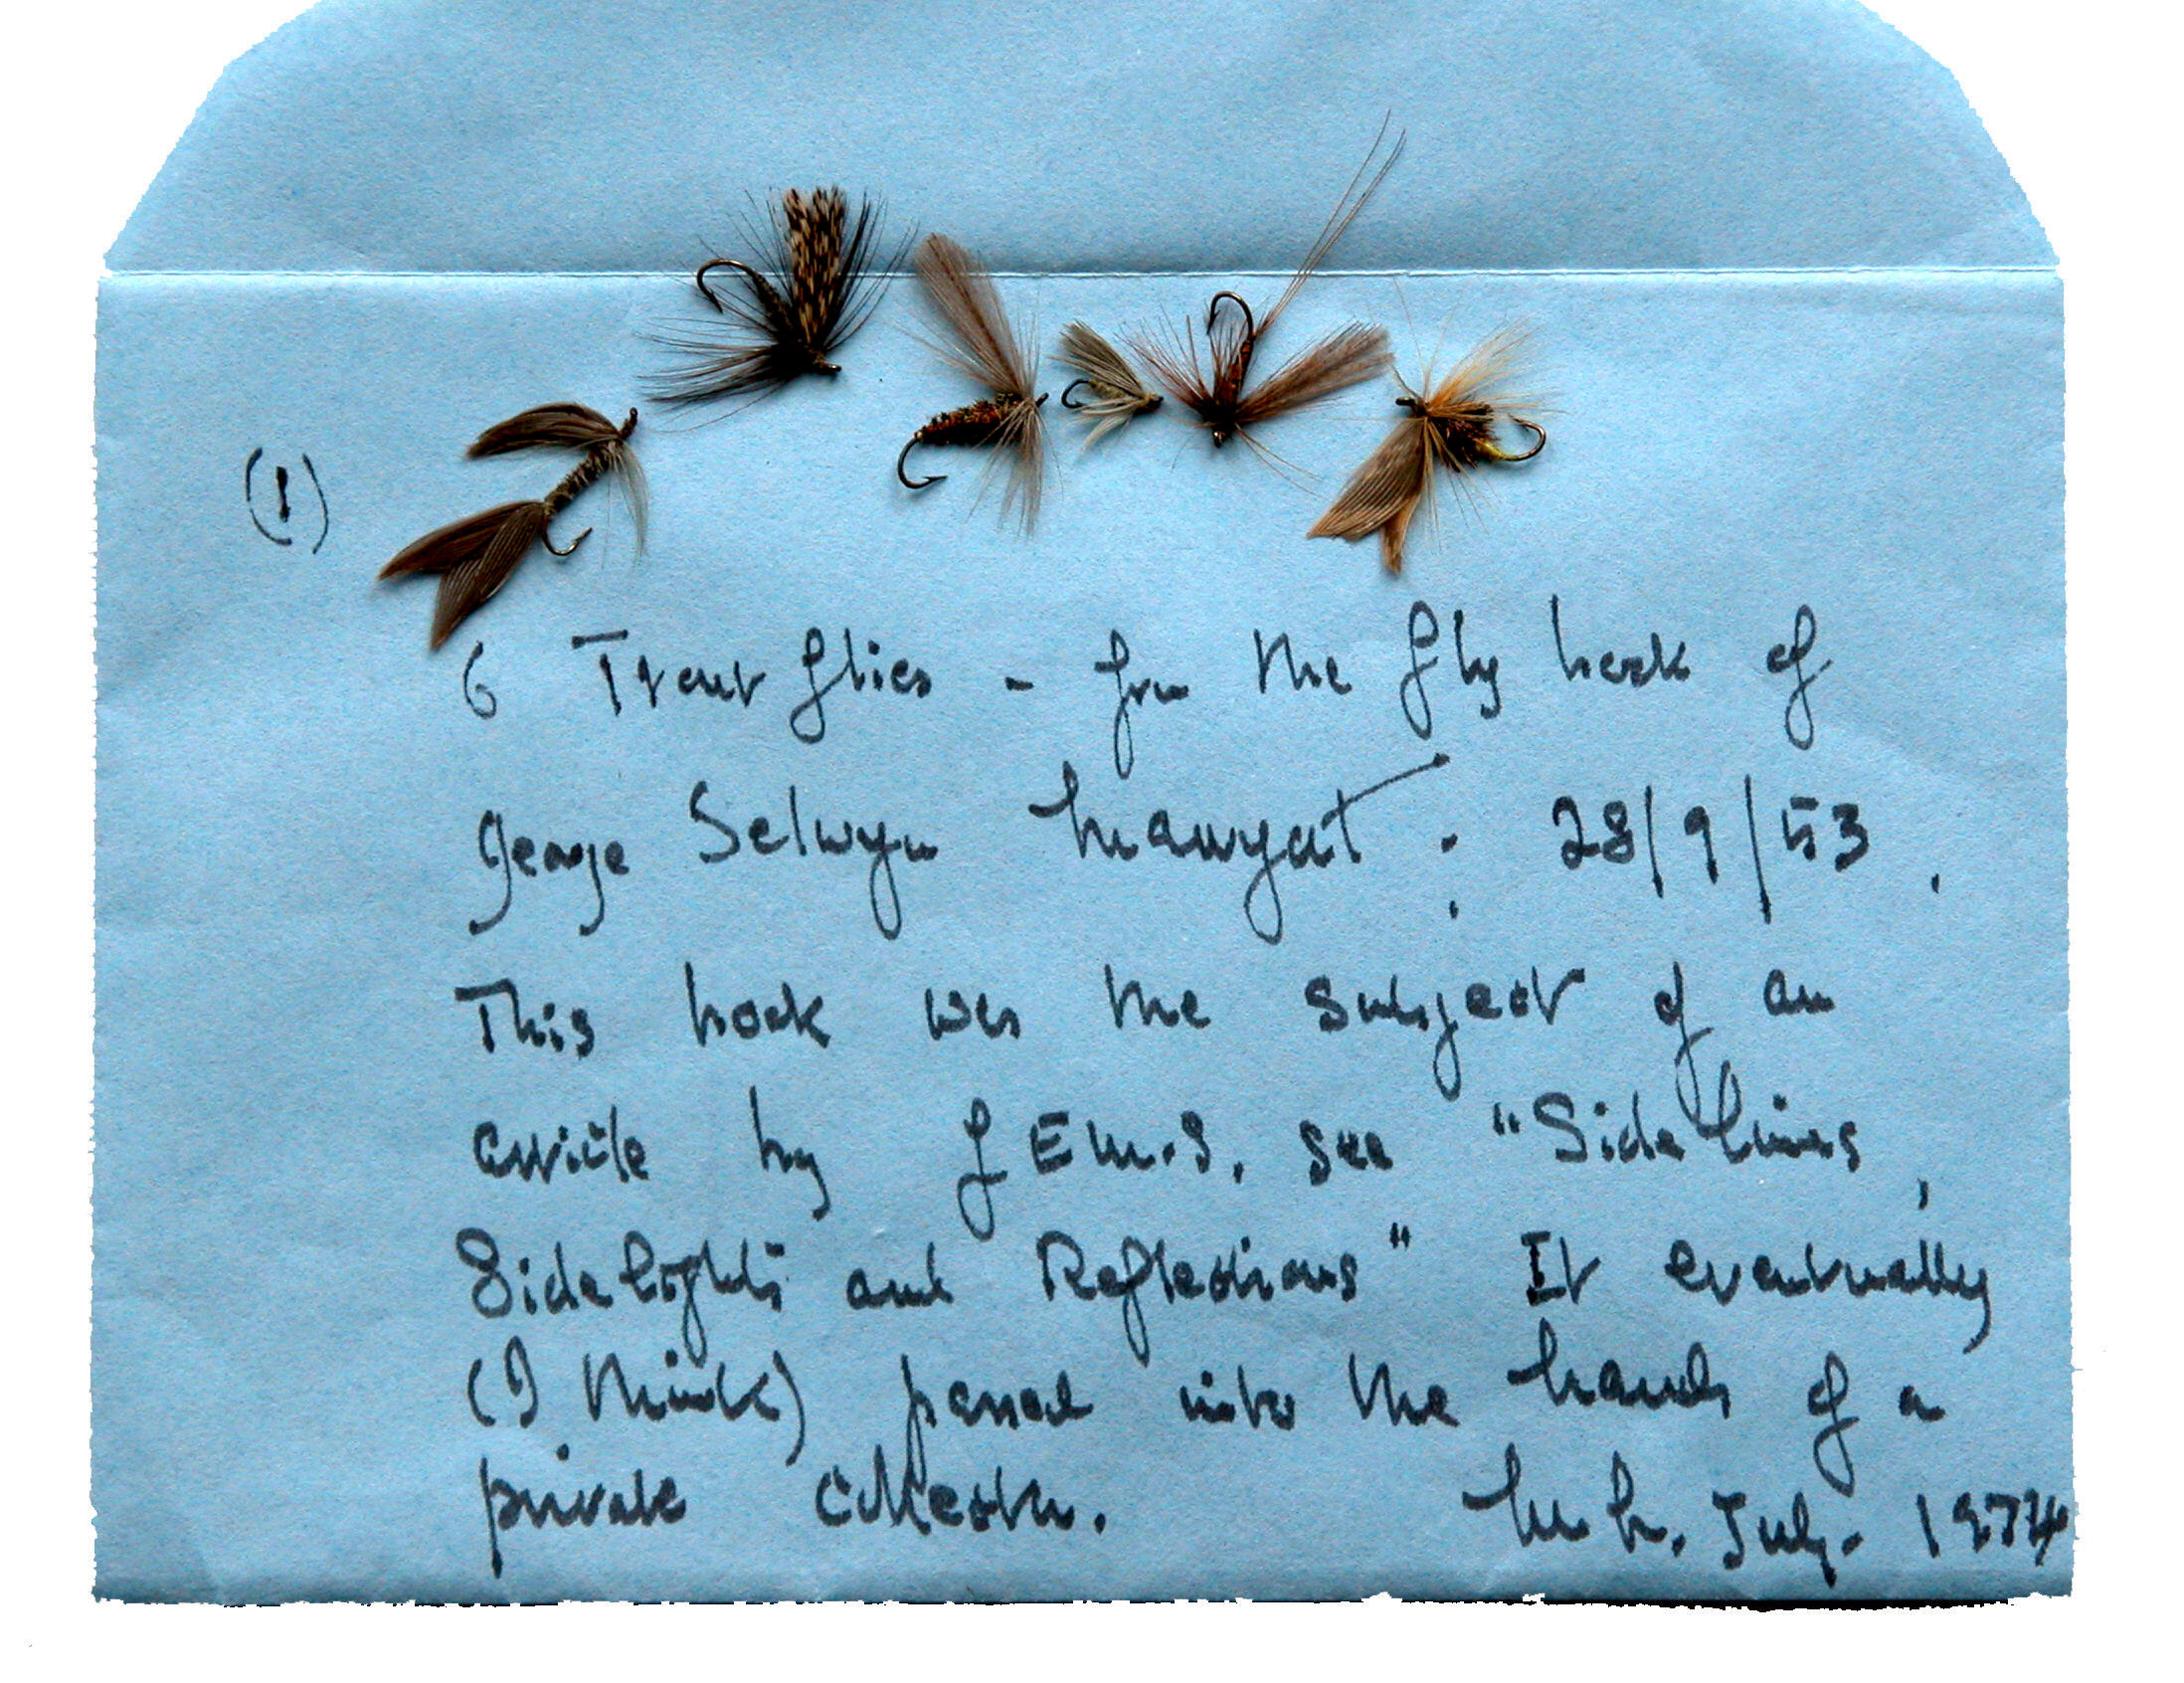 (1)
6 Trout flies - from the fly book of
George Selwyn Marryat : 28/9/53.
This book was the subject of an
article by G.E.M.S. see "Sidelines,
Sidelights and Reflections" It eventually
(I think) passed into the hands of a
private collector. July. 1974